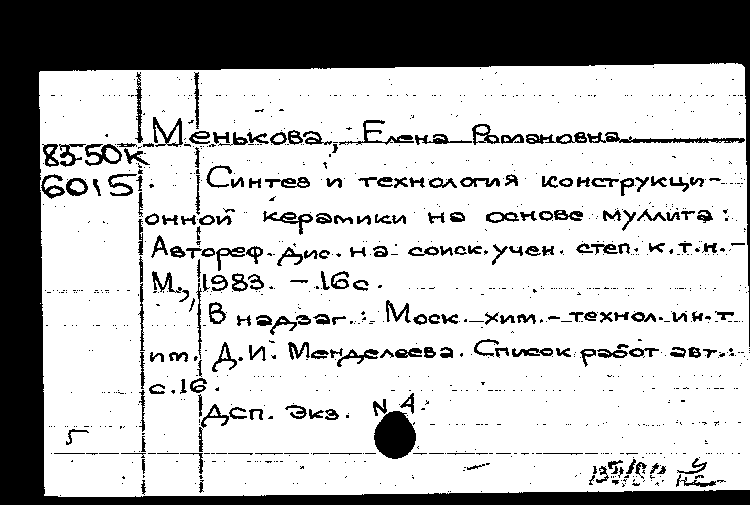 Менькова, Елена Романовна.
83-50К
6015.
Синтез и технология конструкци-
онной керамики на основе муллита:
Автореф. дис. на соиск. учен. степ. к.т.н. -
М., 1983. - 16 с.
В надзаг.: Моск. хим.-технол. ин-т
им. Д.И. Менделеева. Список работ авт.:
с.16.
Дсп. Экз. N 4.
5